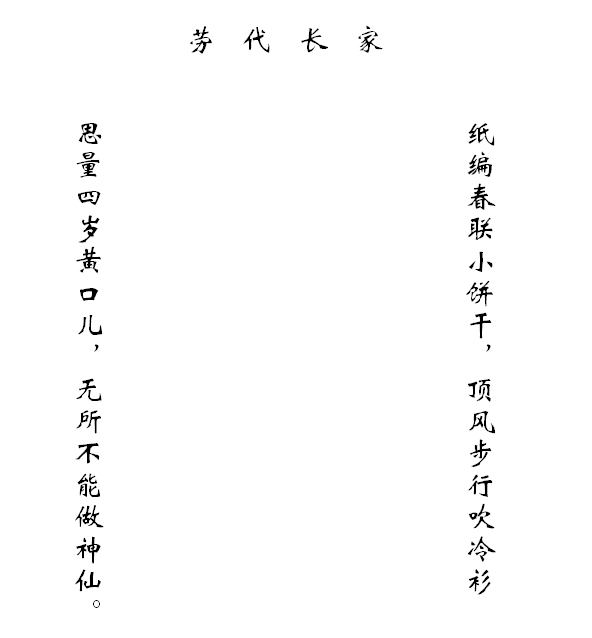 劳代长家
纸编春联小饼干，顶风步行吹冷衫
思量四岁黄口儿，无所不能做神仙。